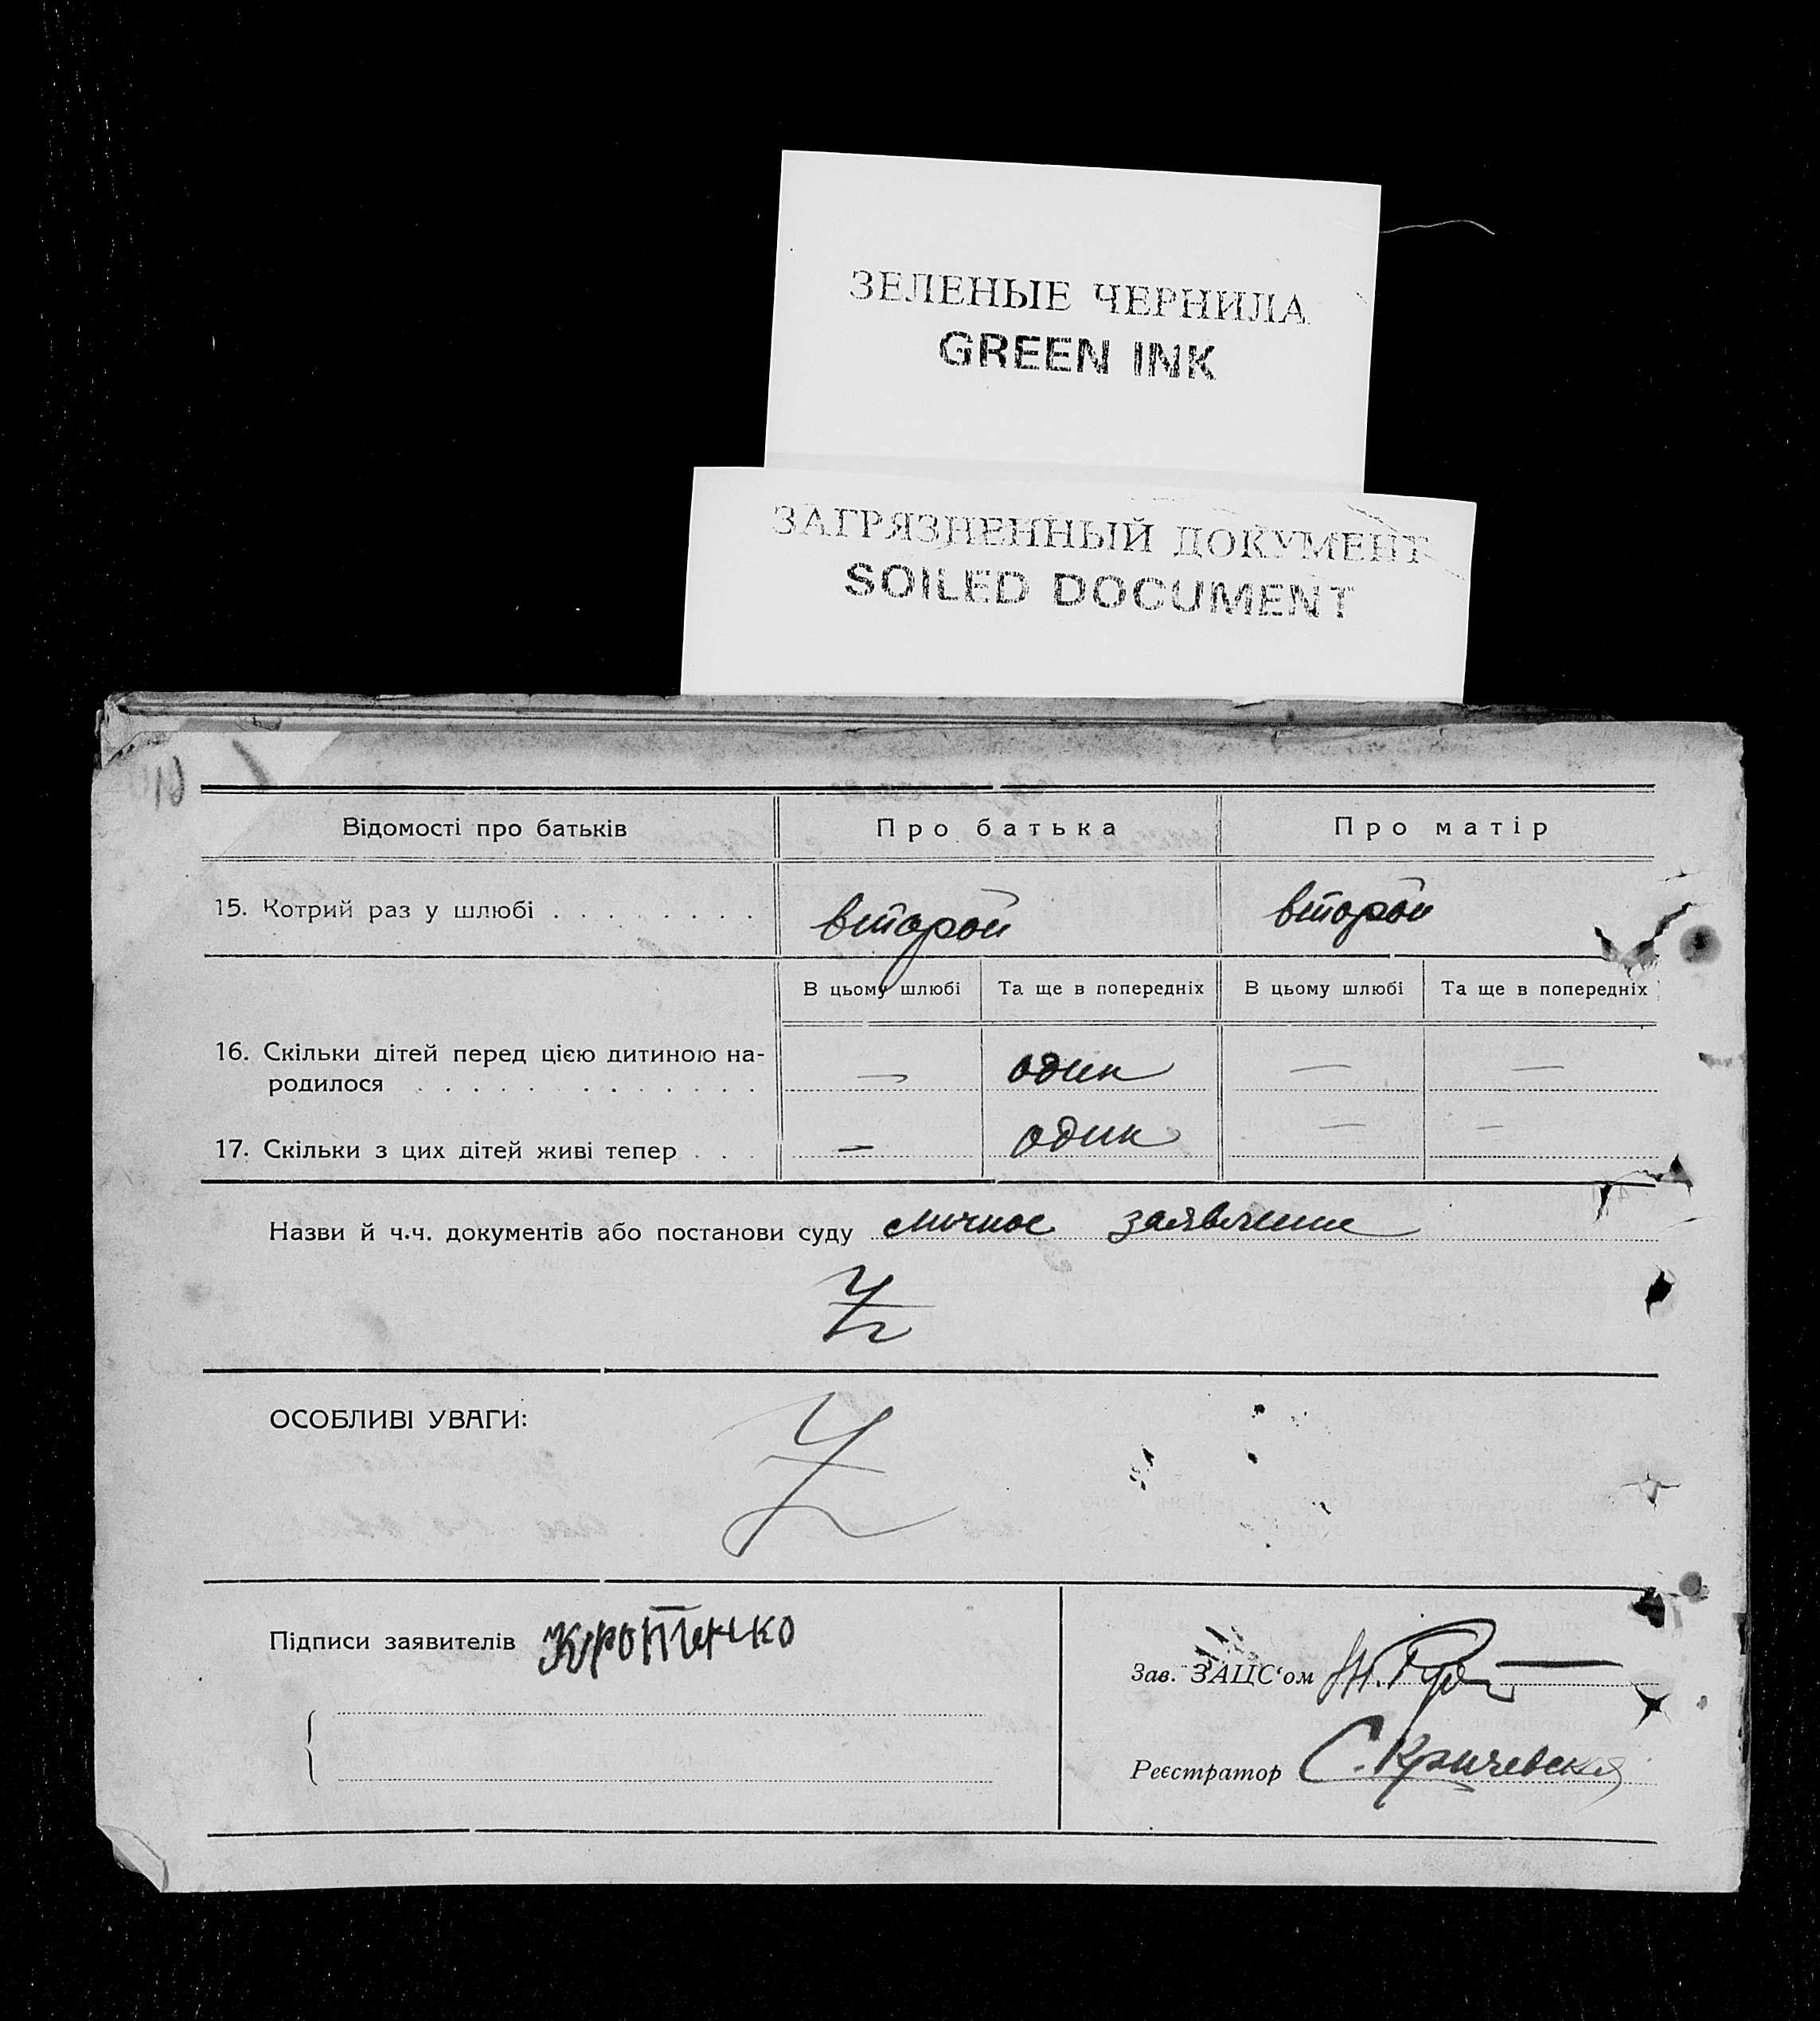 ЗЕЛЕНЫЕ ЧЕРНИЛА
GREEN INK
ЗАГРЯЗНЕННЫЙ ДОКУМЕНТ
SOILED DOCUMENT
Відомості про батьків Про батька Про матір
15. Котрий раз у шлюбі . . . . . . . . второй второй
В цьому шлюбі Та ще в попередніх В цьому шлюбі Та ще в попередніх
16. Скільки дітей перед цією дитиною на-
родилося . . . . . . . . . . . . — один — —
17. Скільки з цих дітей живі тепер . . . — один — —
Назви й ч.ч. документів або постанови суду личное заявление
ОСОБЛИВІ УВАГИ:
Підписи заявителів
Зав. ЗАЦС‘ом
Реєстратор С. Кричевская